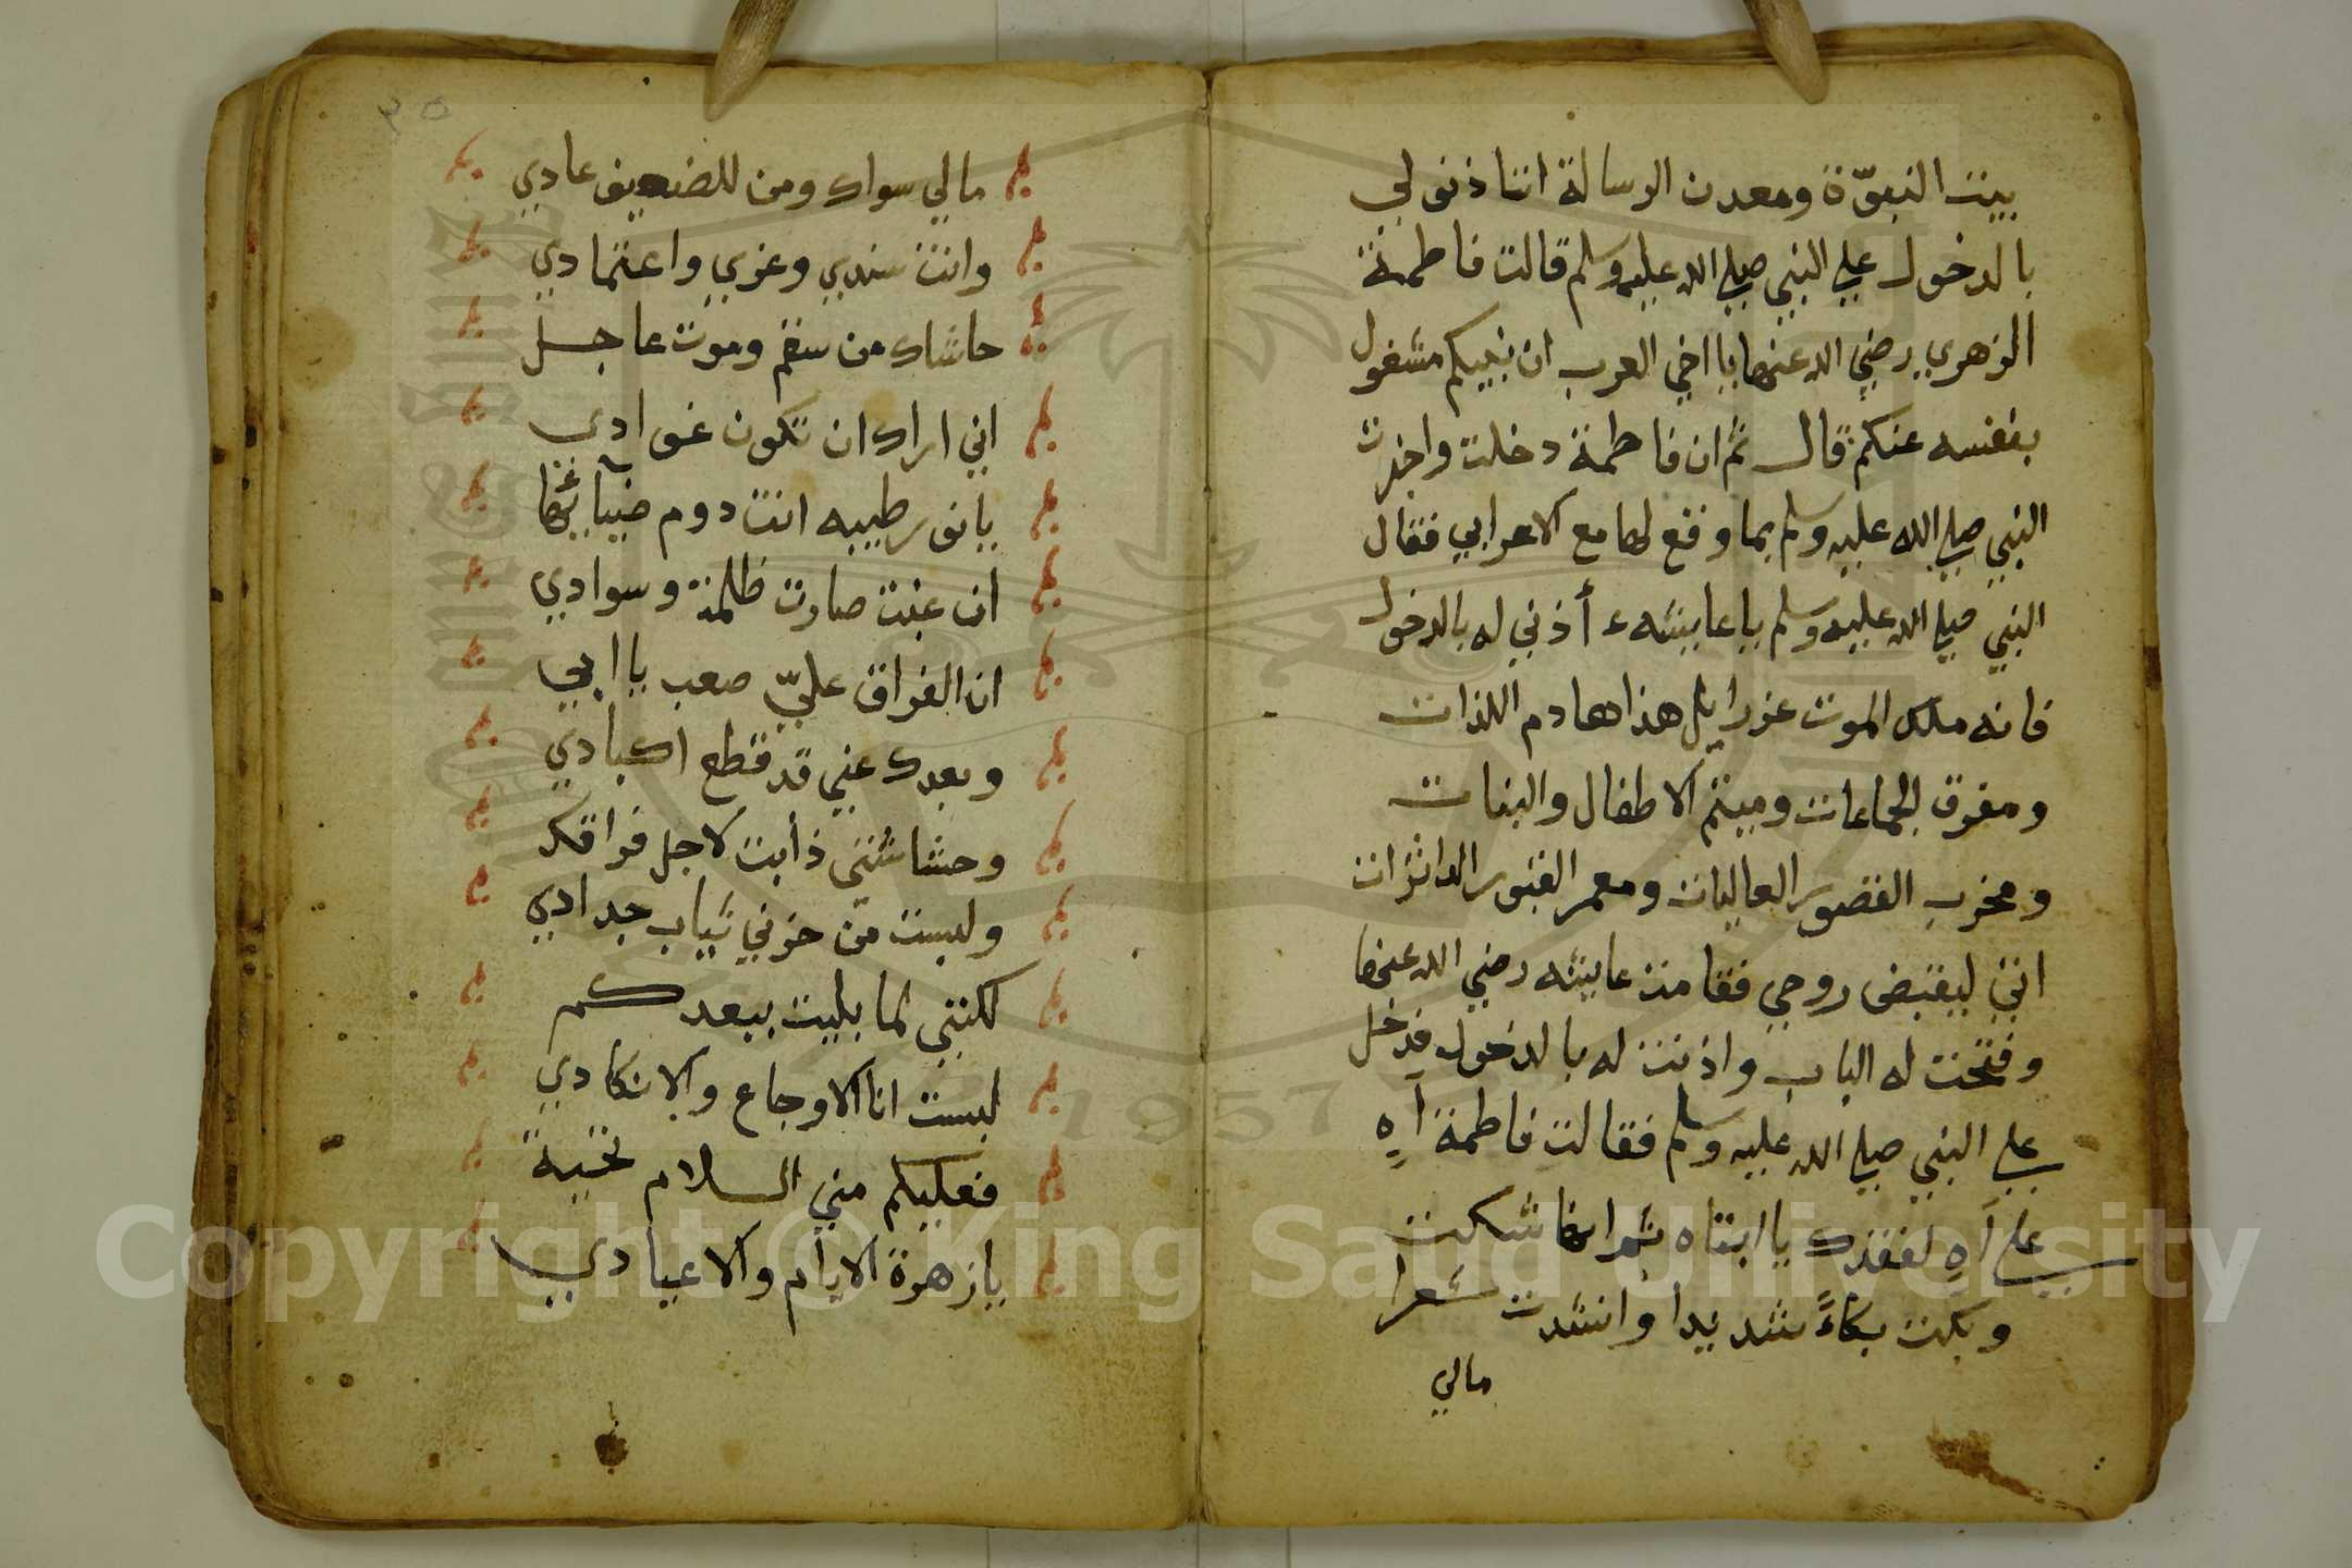 بيت النبوّة ومعدن الرسالة اتاذنو لي
بالدخول علي النبي صلي الله عليه وسلم قالت فاطمة
الزهري رضي الله عنها يا اخي العرب ان نبيكم مشغول
بنفسه عنكم قال ثم ان فاطمة دخلت واخبرت
النبي صلي الله عليه وسلم بما وقع لها مع الاعرابي فقال
النبي صلي الله عليه وسلم يا عايشه ء أذني له بالدخول
فانه ملك الموت عزرايل هذا هادم اللذات
ومفرق الجماعات وميتم الاطفال والبنات
ومخرب القصور العاليات ومعمر القبور الداثرات
اتي ليقبض روحي فقامت عايشه رضي الله عنها
وفتحت له الباب واذنت له بالدخول فدخل
علي النبي صلي الله عليه وسلم فقالت فاطمة آهٍ
علي آهٍ لفقدك يا ابتاه ثم انها شكت
وبكت بكاءً شديدا وانشدت شعرا
مالي
٣٥
مالي سواك ومن للضعيف عادي
وانت سندي وعزي واعتمادي
حاشاك من سقم وموت عاجل
اني اراك ان تكون غوادي
يا نور طيبه انت دوم ضيآئها
ان غبت صارت ظلمة وسوادي
ان الفراق عليّ صعب يا ابي
وبعدك عني قد قطع اكبادي
وحشاشتي ذأبت لاجل فراقك
ولبست من حزني ثياب حدادي
لكنني لما بليت ببعدكم
لبست انا الاوجاع والانكادي
فعليكم مني السلام تحية
يا زهرة الايام والاعيادي
Copyright © King Saud University
1957